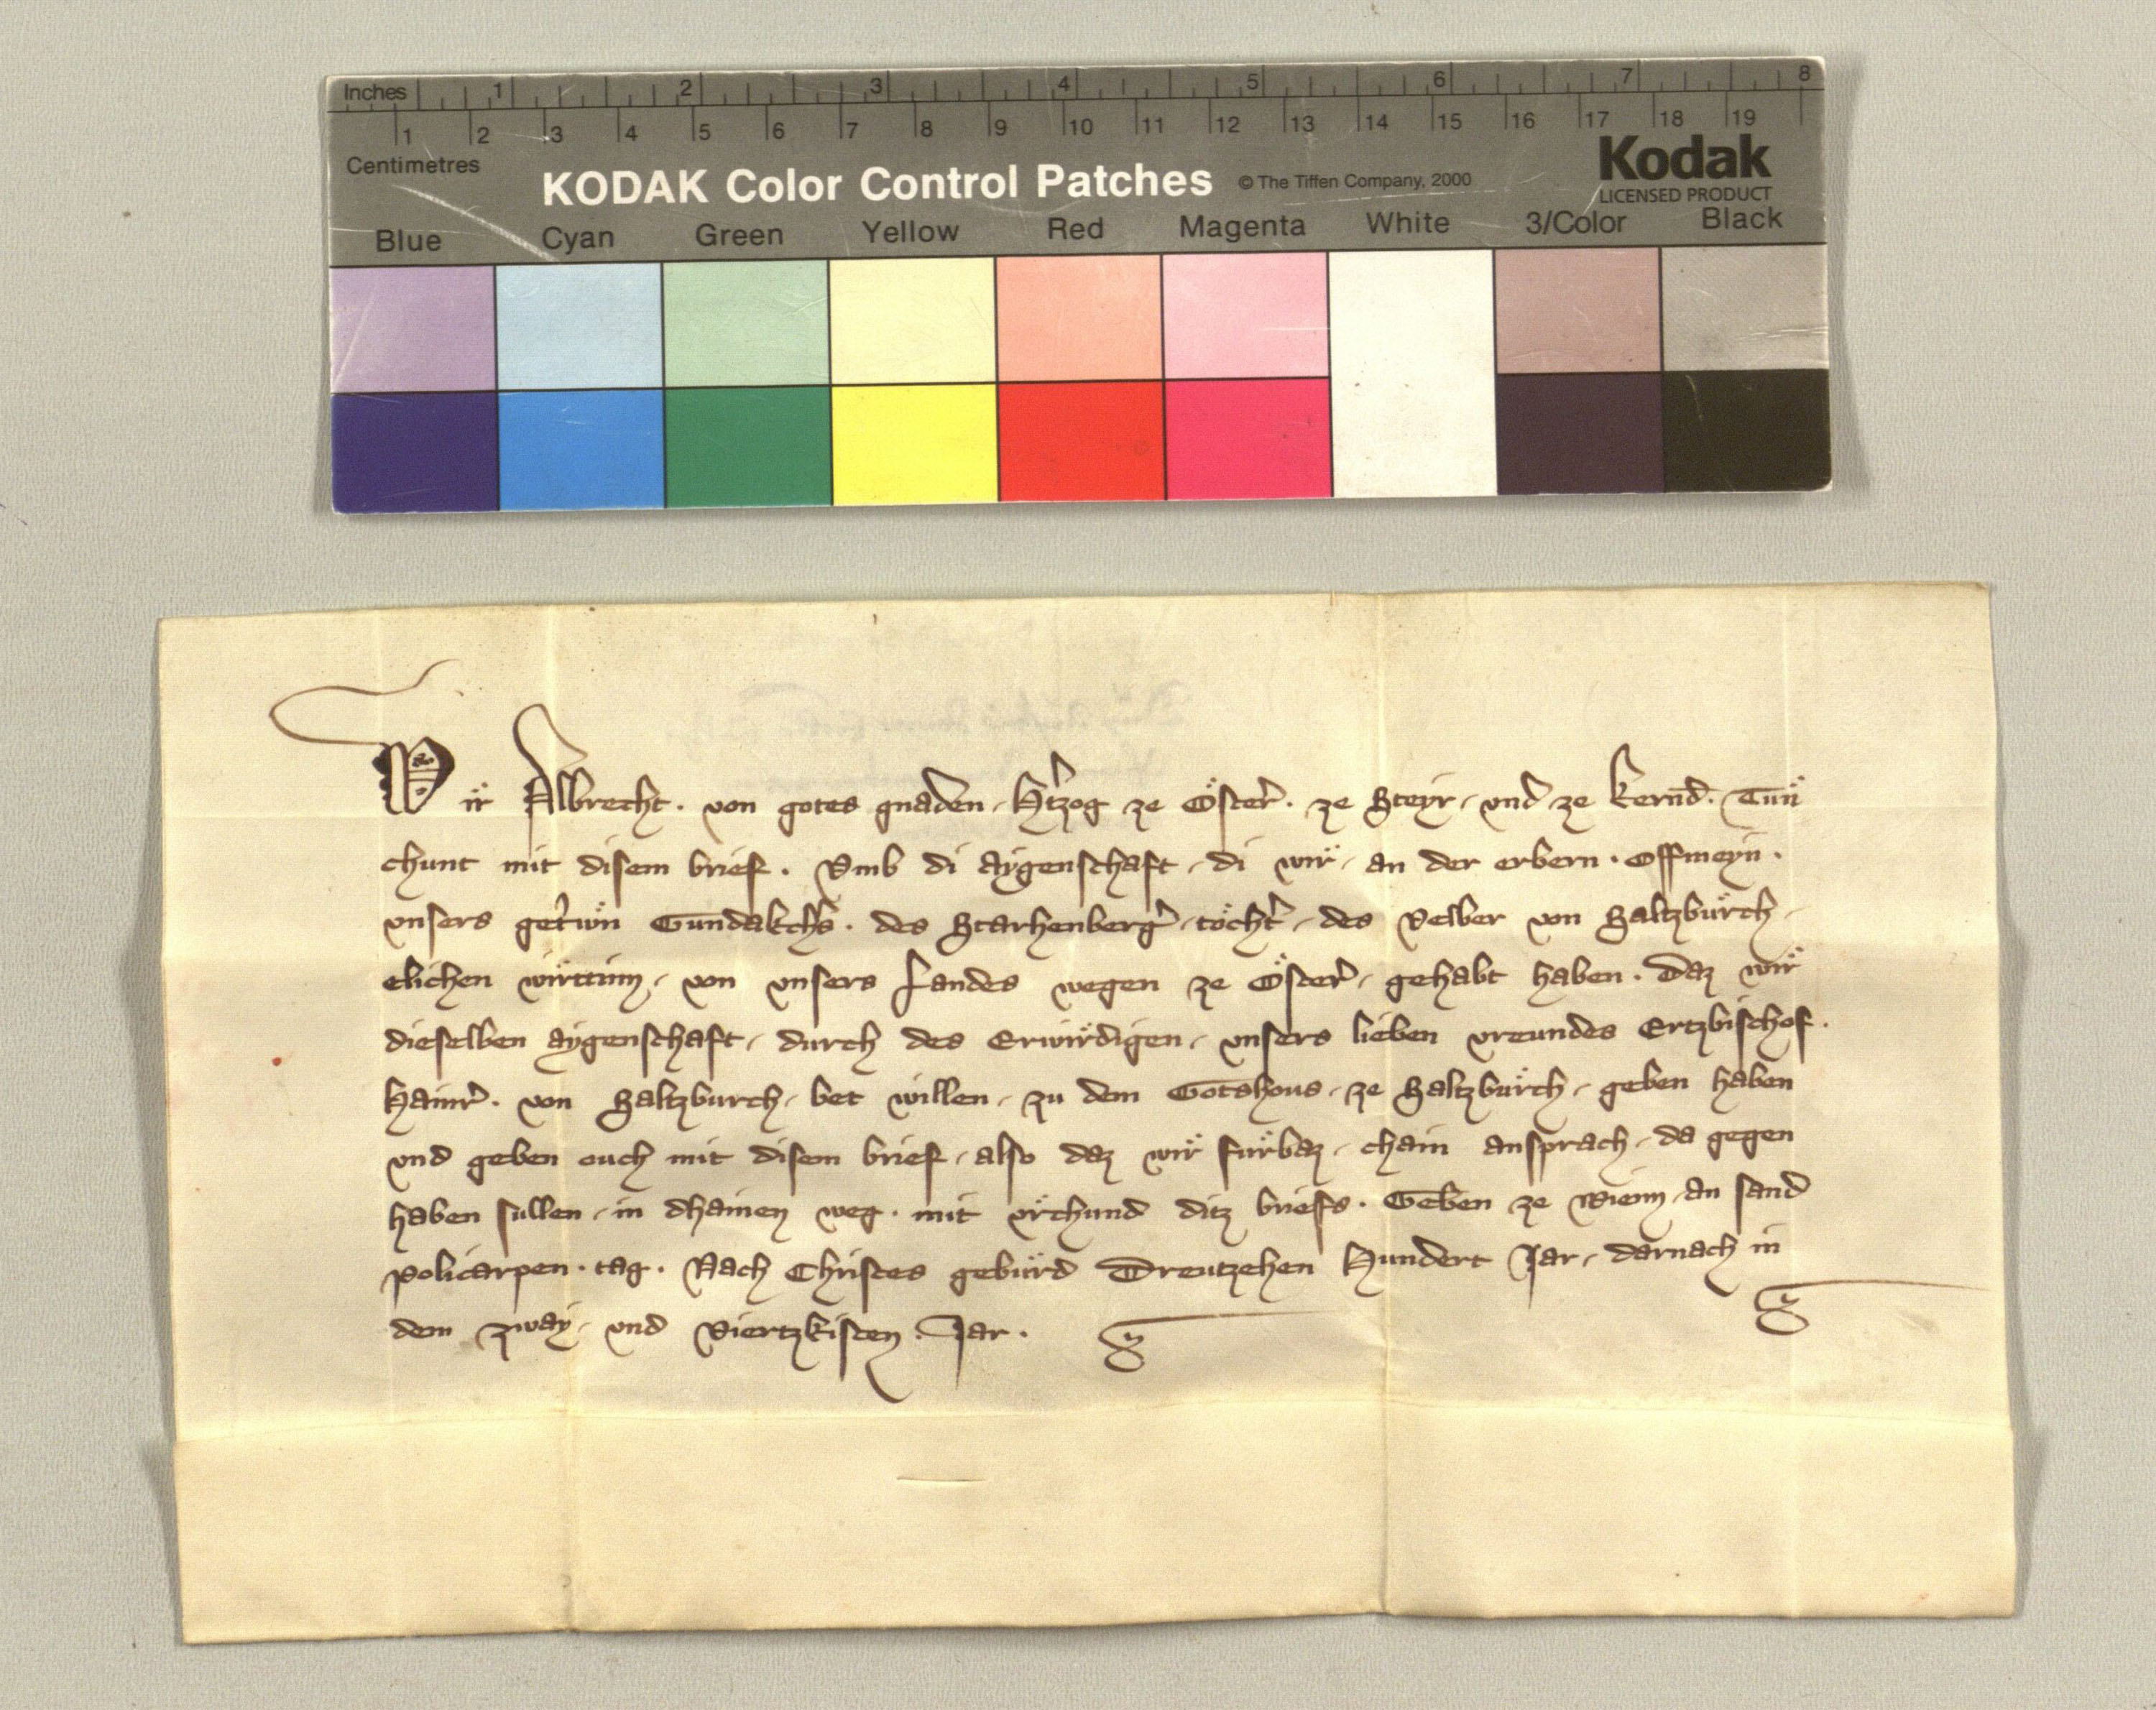 Inches 1 2 3 4 5 6 7 8
1 2 3 4 5 6 7 8 9 10 11 12 13 14 15 16 17 18 19
Centimetres
KODAK Color Control Patches © The Tiffen Company, 2000 Kodak
LICENSED PRODUCT
Blue Cyan Green Yellow Red Magenta White 3/Color Black
Wir Albrecht. von gotes gnaden, Htzog ze Öster. ze Steyr, vnd ze Kernd. Tun
chunt mit disem brief. Vmb di aygenschaft, di wir, an der erbern. Offmeyn.
vnsers getrwn Gundakchs. des Starhenberg, töcht, des Velber von Saltzburch,
elichen wirttinn, von vnsers Landes wegen ze Öster, gehabt haben. Daz wir
dieselben aygenschaft, durch des Erwirdigen, vnsers lieben vreundes Ertzbischof.
Hainr. von Saltzburch, bet willen, zu dem Gotshous, ze Saltzburch, geben haben
vnd geben ouch mit disem brief, also daz wir furbaz, chain ansprach, da gegen
haben sullen, in dhainen weg. mit vrchund ditz briefs. Geben ze Wienn, an sand
Policarpen. tag. Nach Christes geburd Dreutzehen Hundert Jar, darnach in
dem zway, vnd Viertzkisten. Jar.